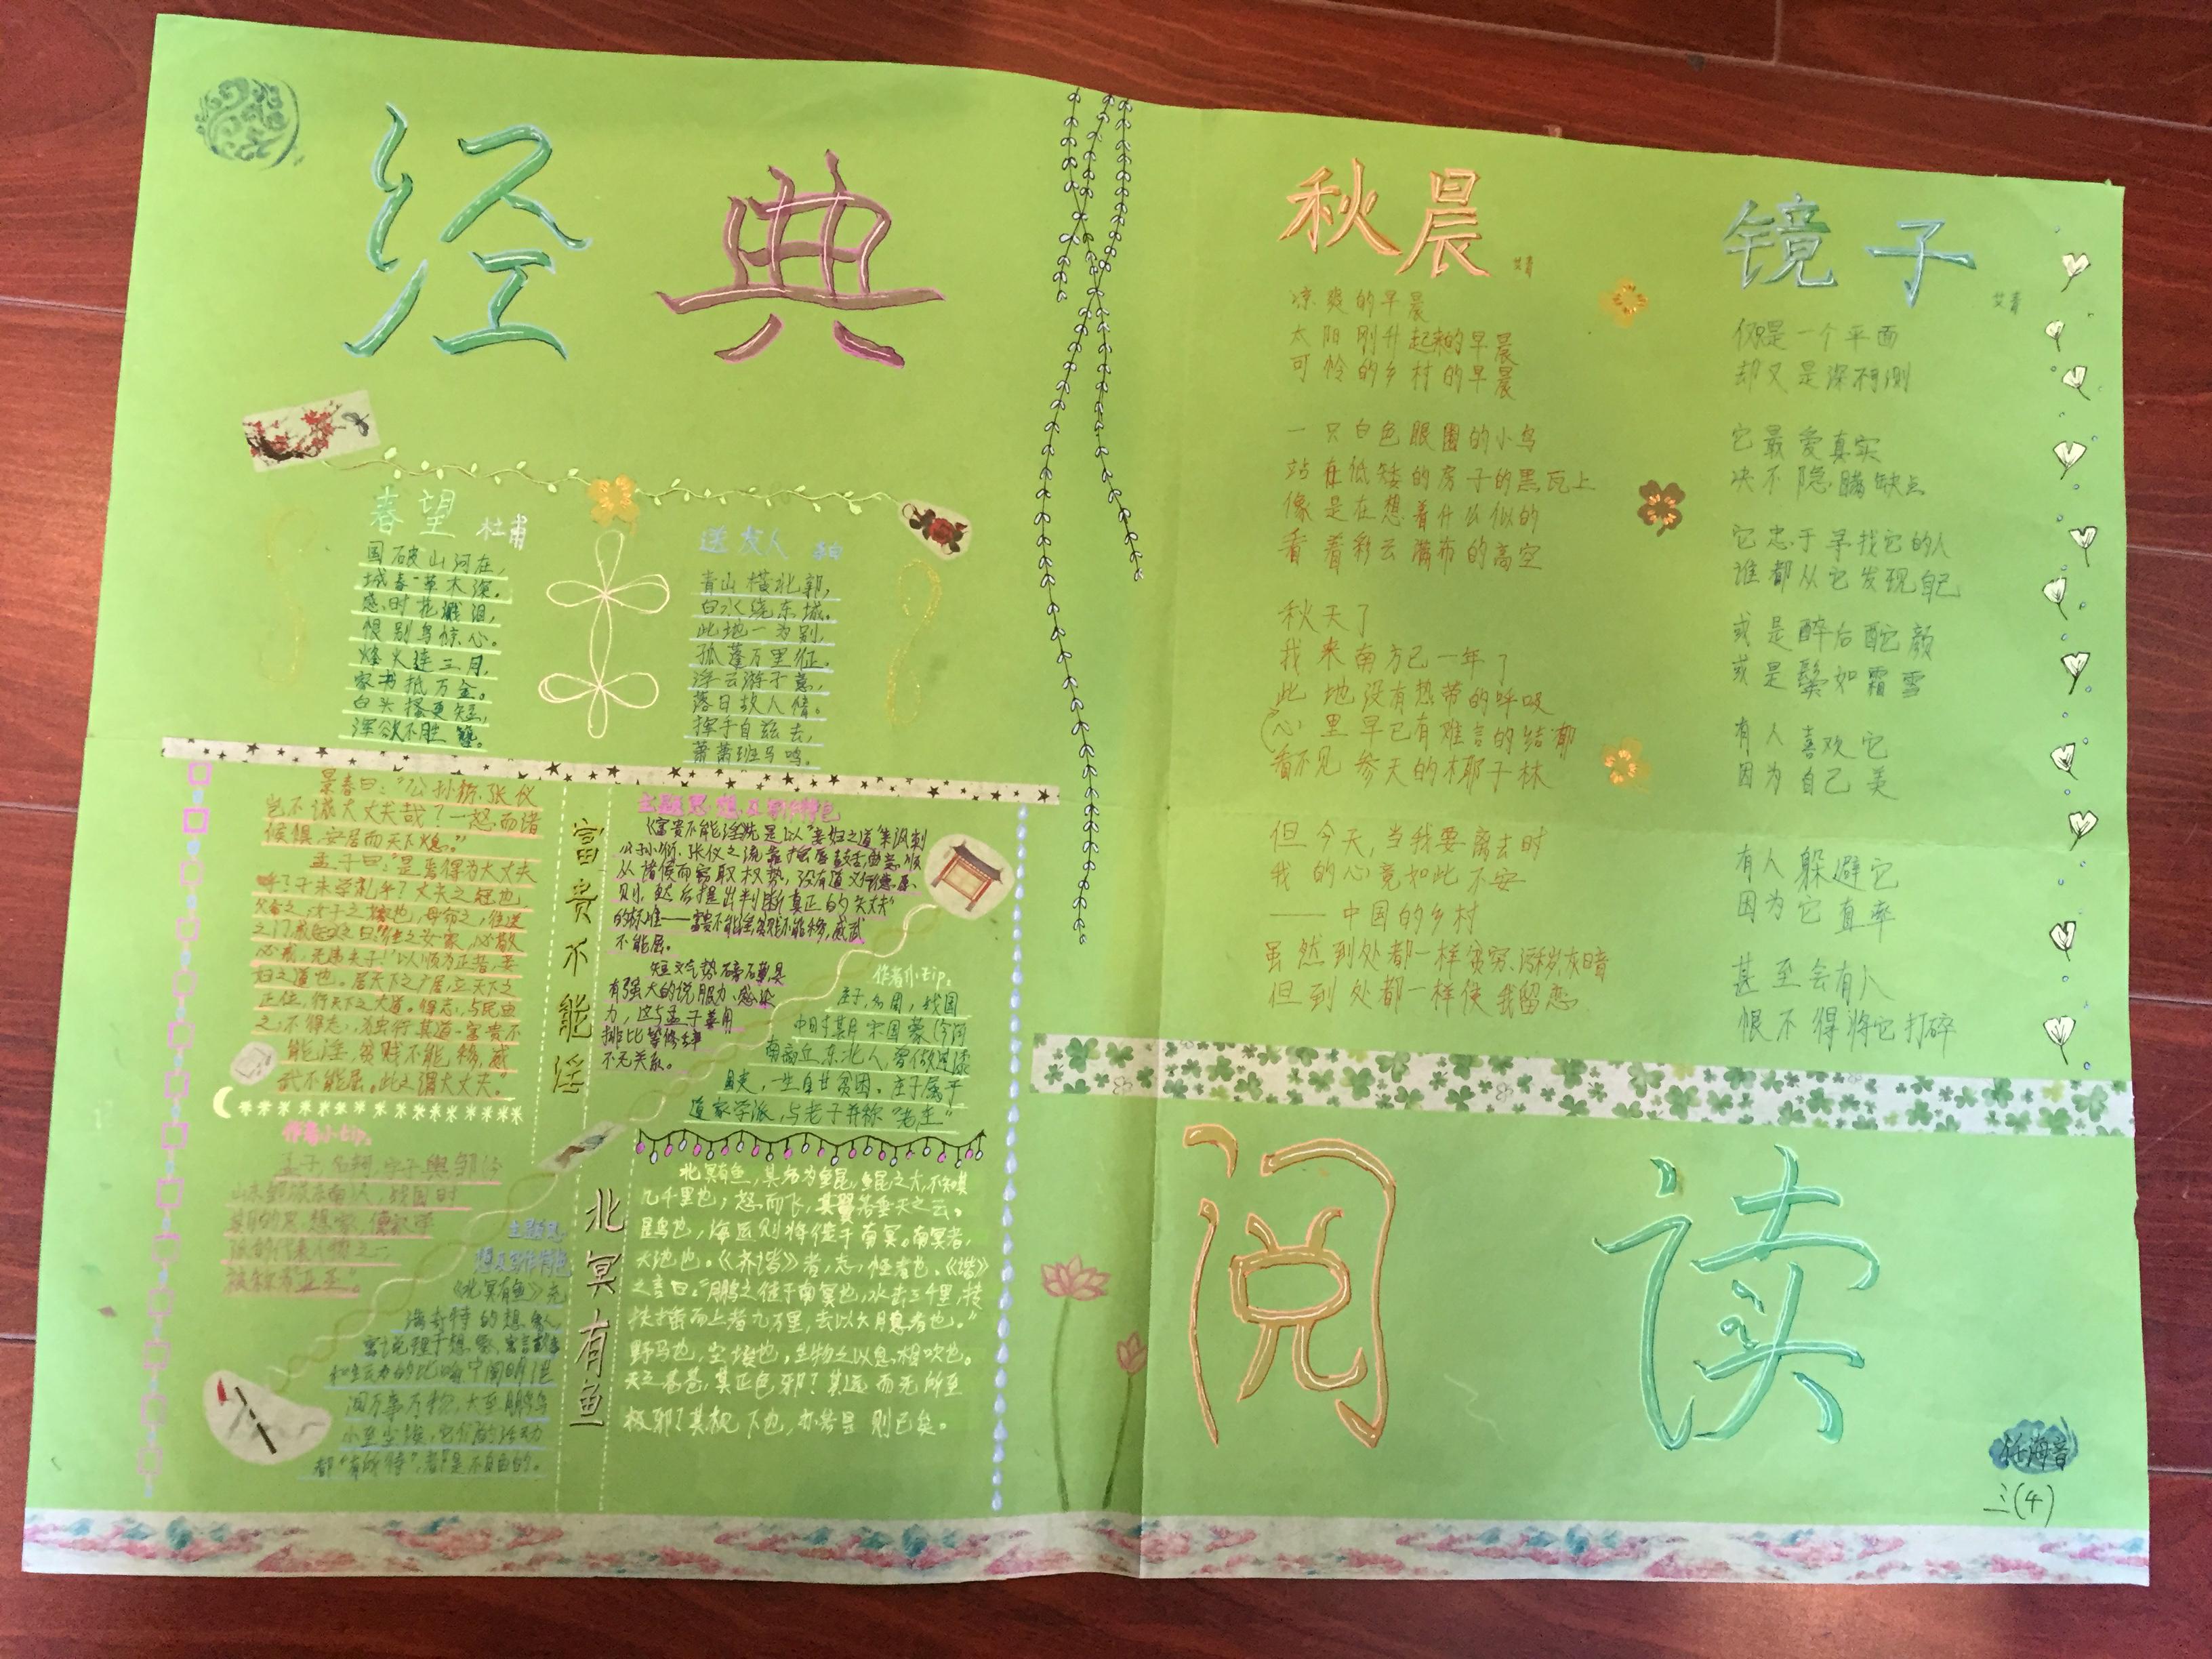 经典
春望 杜甫
国破山河在，
城春草木深。
感时花溅泪，
恨别鸟惊心。
烽火连三月，
家书抵万金。
白头搔更短，
浑欲不胜簪。
送友人 李白
青山横北郭，
白水绕东城。
此地一为别，
孤蓬万里征。
浮云游子意，
落日故人情。
挥手自兹去，
萧萧班马鸣。
景春曰：“公孙衍、张仪
岂不诚大丈夫哉？一怒而诸
侯惧，安居而天下熄。”
孟子曰：“是焉得为大丈夫
乎？子未学礼乎？丈夫之冠也，
父命之；女子之嫁也，母命之，往送
之门，
必戒，无违夫子！’以顺为正者，妾
妇之道也。居天下之广居，立天下之
正位，行天下之大道。得志，与民由
之；不得志，独行其道。富贵不
能淫，贫贱不能移，威
武不能屈。此之谓大丈夫。”
作者小tip。
孟子，名轲，字子舆，邹(今
山东邹城东南)人，战国时
期的思想家，儒家学
派的代表人物之一，
被称为“亚圣”。
富贵不能淫
主题思想及写作特色
《富贵不能淫》先是以“妾妇之道”来讽刺
公孙衍、张仪之流靠摇唇鼓舌、曲意顺
从诸侯而窃取权势，没有道义仁德、原
则，然后提出判断真正的“大丈夫”
的标准——富贵不能淫，贫贱不能移，威武
不能屈。
短文气势磅礴，具
有强大的说服力、感染
力，这与孟子善用
排比等修辞
不无关系。
作者小tip。
庄子，名周，战国
中时期宋国蒙(今河
南商丘东北)人，曾做过漆
园吏，一生自甘贫困。庄子属于
道家学派，与老子并称“老庄”
北冥有鱼
主题思
想及写作特色
《北冥有鱼》充
满奇特的想象，
寓说理于想象、寓言故事
和生动的比喻中，阐明了世
间万事万物，大至鹏鸟，
小至尘埃，它们的活动
都“有所待”，都是不自由的。
北冥有鱼，其名为鲲。鲲之大，不知其
几千里也；怒而飞，其翼若垂天之云。
是鸟也，海运则将徙于南冥。南冥者，
天池也。《齐谐》者，志怪者也。《谐》
之言曰：“鹏之徙于南冥也，水击三千里，抟
扶摇而上者九万里，去以六月息者也。”
野马也，尘埃也，生物之以息相吹也。
天之苍苍，其正色邪？其远而无所至
极邪？其视下也，亦若是则已矣。
秋晨
艾青
凉爽的早晨
太阳刚升起来的早晨
可怜的乡村的早晨
一只白色眼圈的小鸟
站在低矮的房子的黑瓦上
像是在想着什么似的
看着彩云满布的高空
秋天了
我来南方已一年了
此地没有热带的呼吸
心里早已有难言的结郁
看不见参天的椰子林
但今天，当我要离去时
我的心竟如此不安
——中国的乡村
虽然到处都一样贫穷、污秽、灰暗
但到处都一样使我留恋
镜子
艾青
仅只是一个平面
却又是深不可测
它最爱真实
决不隐瞒缺点
它忠于寻找它的人
谁都从它发现自己
或是醉后酡颜
或是鬓如霜雪
有人喜欢它
因为自己美
有人躲避它
因为它直率
甚至会有人
恨不得将它打碎
阅读
任海音
三(4)